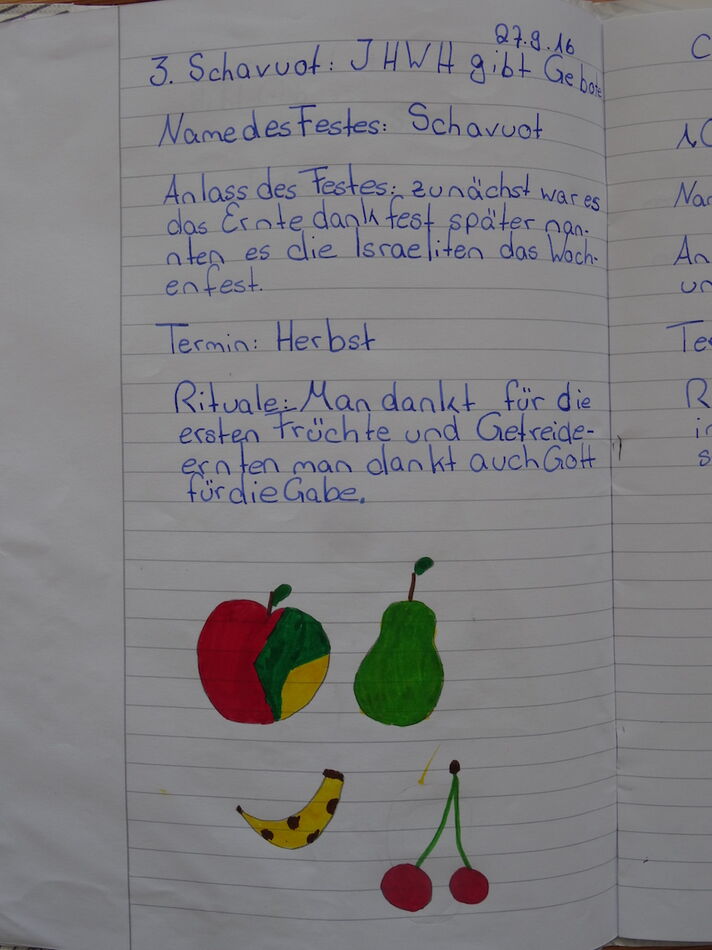 27.9.16
3. Schavuot: JHWH gibt Gebote
Name des Festes: Schavuot
Anlass des Festes: zunächst war es
das Erntedankfest später nan-
nten es die Israeliten das Woch-
enfest.
Termin: Herbst
Rituale: Man dankt für die
ersten Früchte und Getreide-
ernten man dankt auch Gott
für die Gabe.
C
1.
Na
An
un
Te
R
i
s